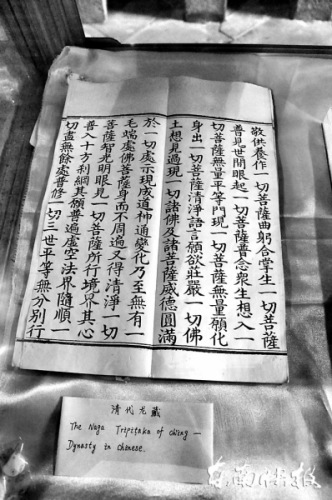 敬供養作一切菩薩曲躬合掌生一切菩薩
普見世間眼起一切菩薩普念衆生想入一
切菩薩無量平等門現一切菩薩無量願化
身出一切菩薩清淨語言願欲莊嚴一切佛
土想見過現一切諸佛及諸菩薩威德圓滿
於一切處示現成道神通變化乃至無有一
毛端處佛菩薩身而不周遍又得清淨一切
菩薩智光明眼見一切菩薩所行境界其心
善入十方刹網其願普遍虛空法界隨順一
切盡無餘處普修一切三世平等無分別行
清代龙藏
The Naga Tripitaka of Ching —
Dynasty in Chinese.
东南快报